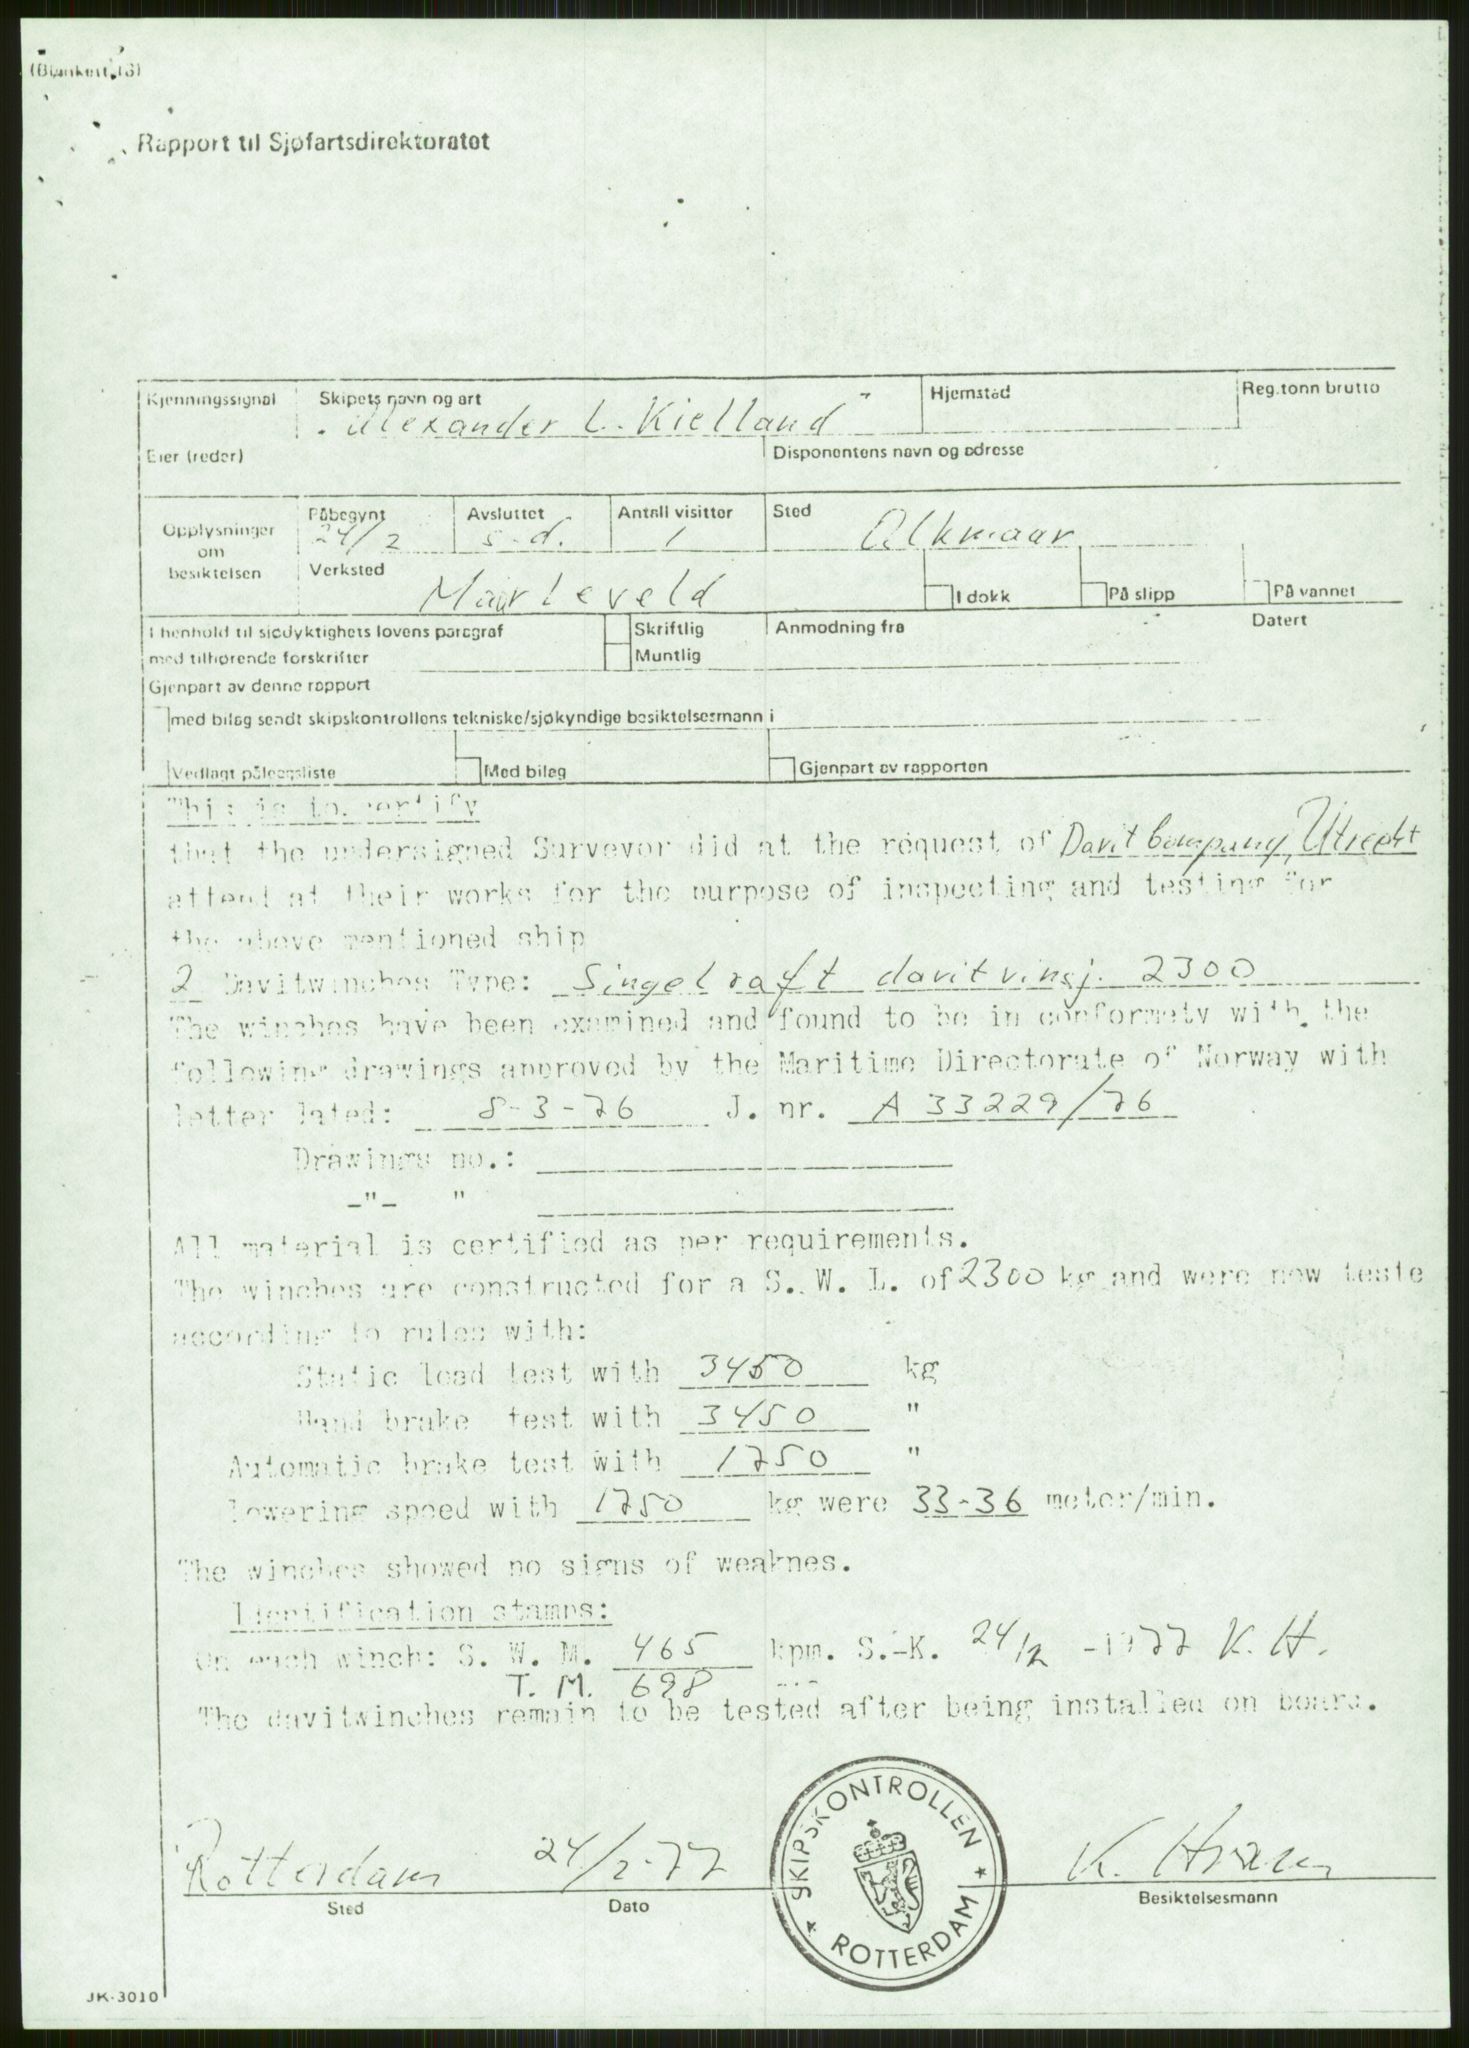 (Blankett 13)
Rapport til Sjøfartsdirektoratet
Kjenningssignal
Skipets navn og art
Hjemsted
Reg.tonn brutto
"Alexander L. Kielland"
Eier (reder)
Disponentens navn og adresse
Opplysninger om besiktelsen
Påbegynt
Avsluttet
Antall visitter
Sted
24/2
s.d.
1
Alkmaar
Verksted
Maarleveld
I dokk
På slipp
På vannet
I henhold til sjødyktighets lovens paragraf
med tilhørende forskrifter
Skriftlig
Muntlig
Anmodning fra
Datert
Gjenpart av denne rapport
med bilag sendt skipskontrollens tekniske/sjøkyndige besiktelsesmann i
Vedlagt påleggsliste
Med bilag
Gjenpart av rapporten
This is to certify
that the undersigned Surveyor did at the request of Davit Company, Utrecht
attend at their works for the purpose of inspecting and testing for
the above mentioned ship
2 Davitwinches Type: Singel raft davitvinsj. 2300
The winches have been examined and found to be in conformety with the
following drawings approved by the Maritime Directorate of Norway with
letter dated: 8-3-76 J. nr. A 33229/76
Drawings no.:
-"- "
All material is certified as per requirements.
The winches are constructed for a S. W. L. of 2300 kg and were now teste
according to rules with:
Static load test with 3450 kg
Hand brake test with 3450 "
Automatic brake test with 1750 "
Lowering speed with 1750 kg were 33-36 meter/min.
The winches showed no signs of weaknes.
Identification stamps:
On each winch: S. W. M. 465 kpm. S.-K. 24/2 -1977 K. H.
T. M. 698 -"-
The davitwinches remain to be tested after being installed on board.
SKIPSKONTROLLEN
ROTTERDAM
Rotterdam 24/2-77 K.
Sted
Dato
Besiktelsesmann
JK-3010